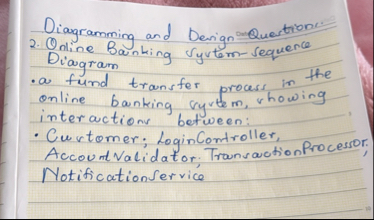 Diagramming and Design Questions:
2. Online Banking System-sequence
Diagram
• a fund transfer process in the
online banking system, showing
interactions between:
• Customer, LoginController,
AccountValidator, TransactionProcessor,
NotificationService